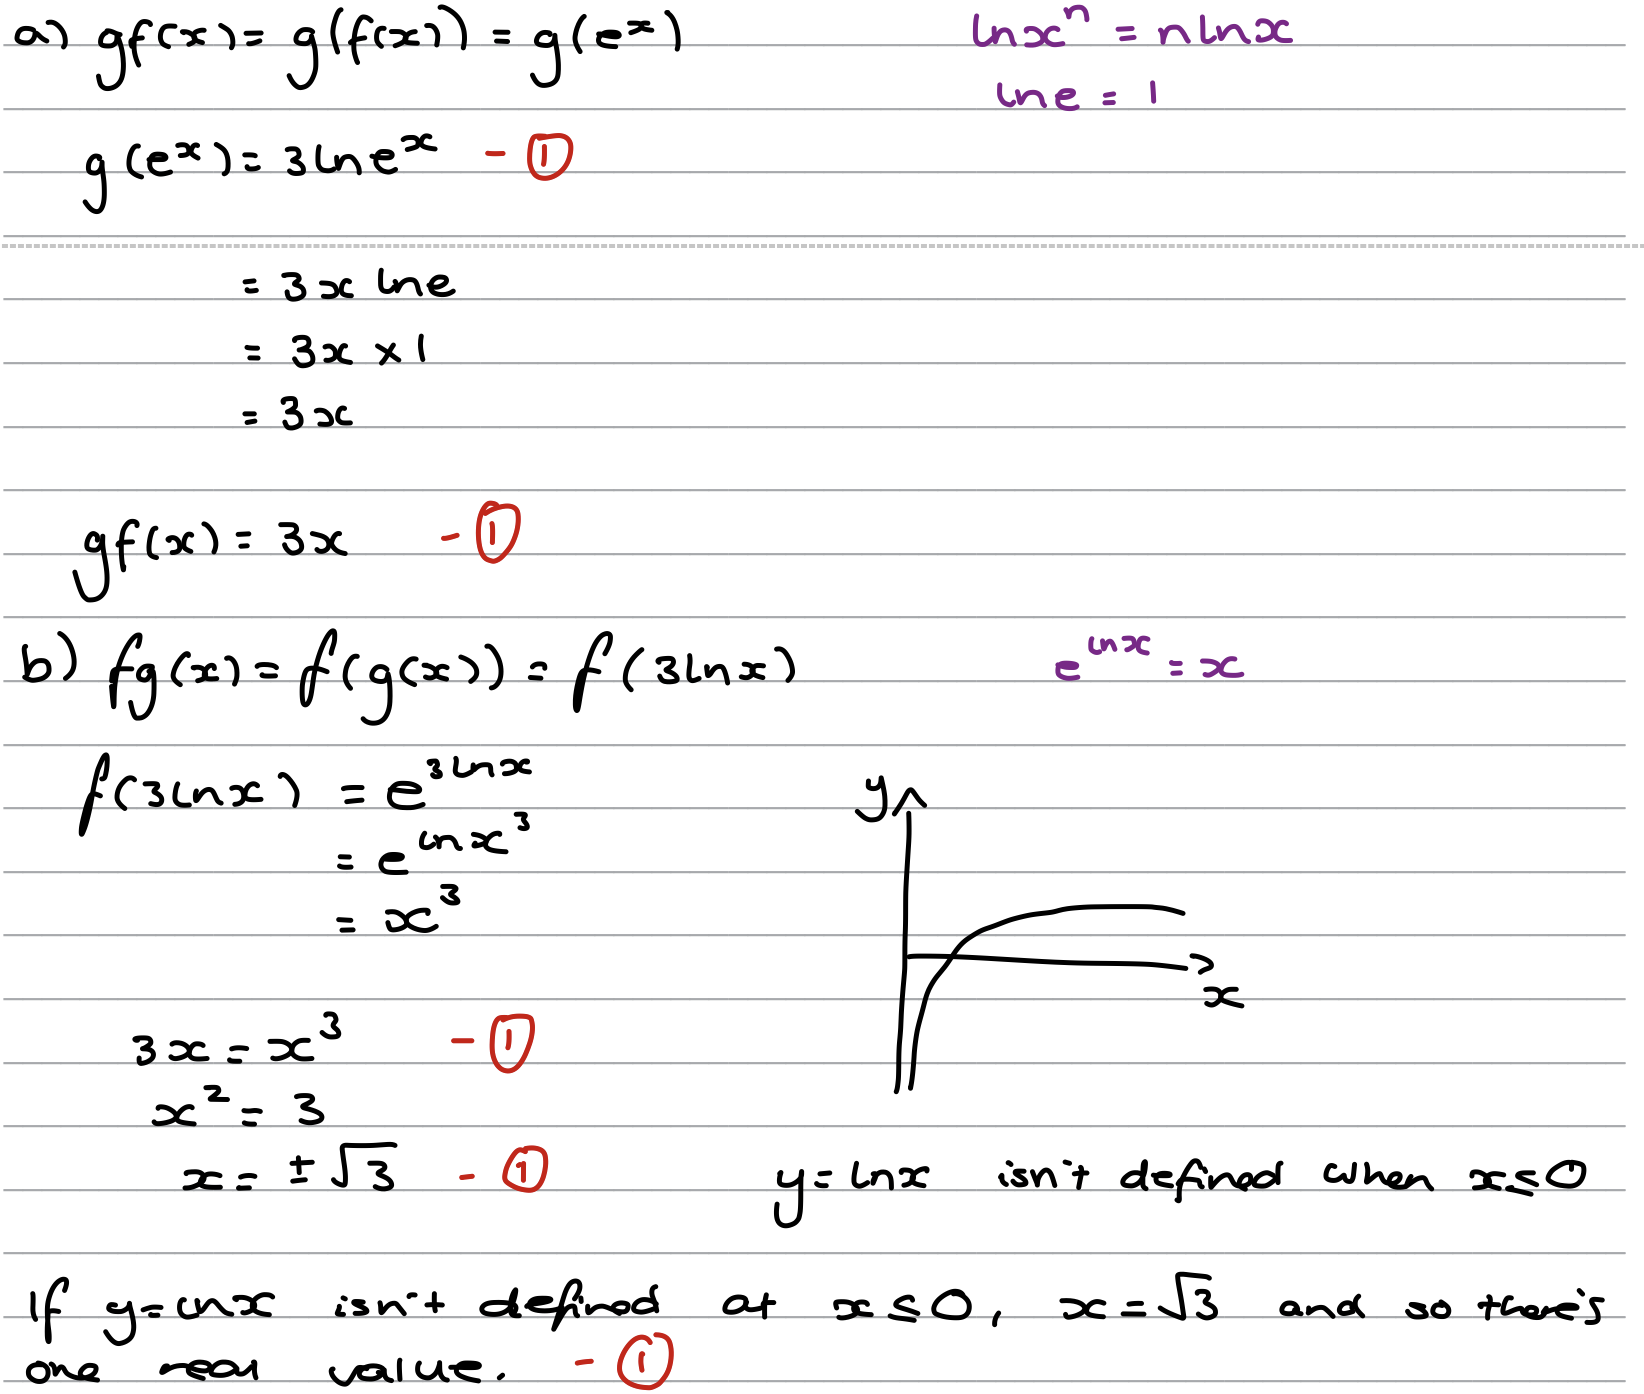 a) gf(x) = g(f(x)) = g(e^x)
ln x^n = n ln x
ln e = 1
g(e^x) = 3 ln e^x - ①
= 3x ln e
= 3x × 1
= 3x
gf(x) = 3x - ①
b) fg(x) = f(g(x)) = f(3 ln x)
e^{ln x} = x
f(3 ln x) = e^{3 ln x}
= e^{ln x^3}
= x^3
y
x
3x = x^3 - ①
x^2 = 3
x = ± √3 - ①
y = ln x isn't defined when x ≤ 0
If y = ln x isn't defined at x ≤ 0, x = √3 and so there's
one real value. - ①